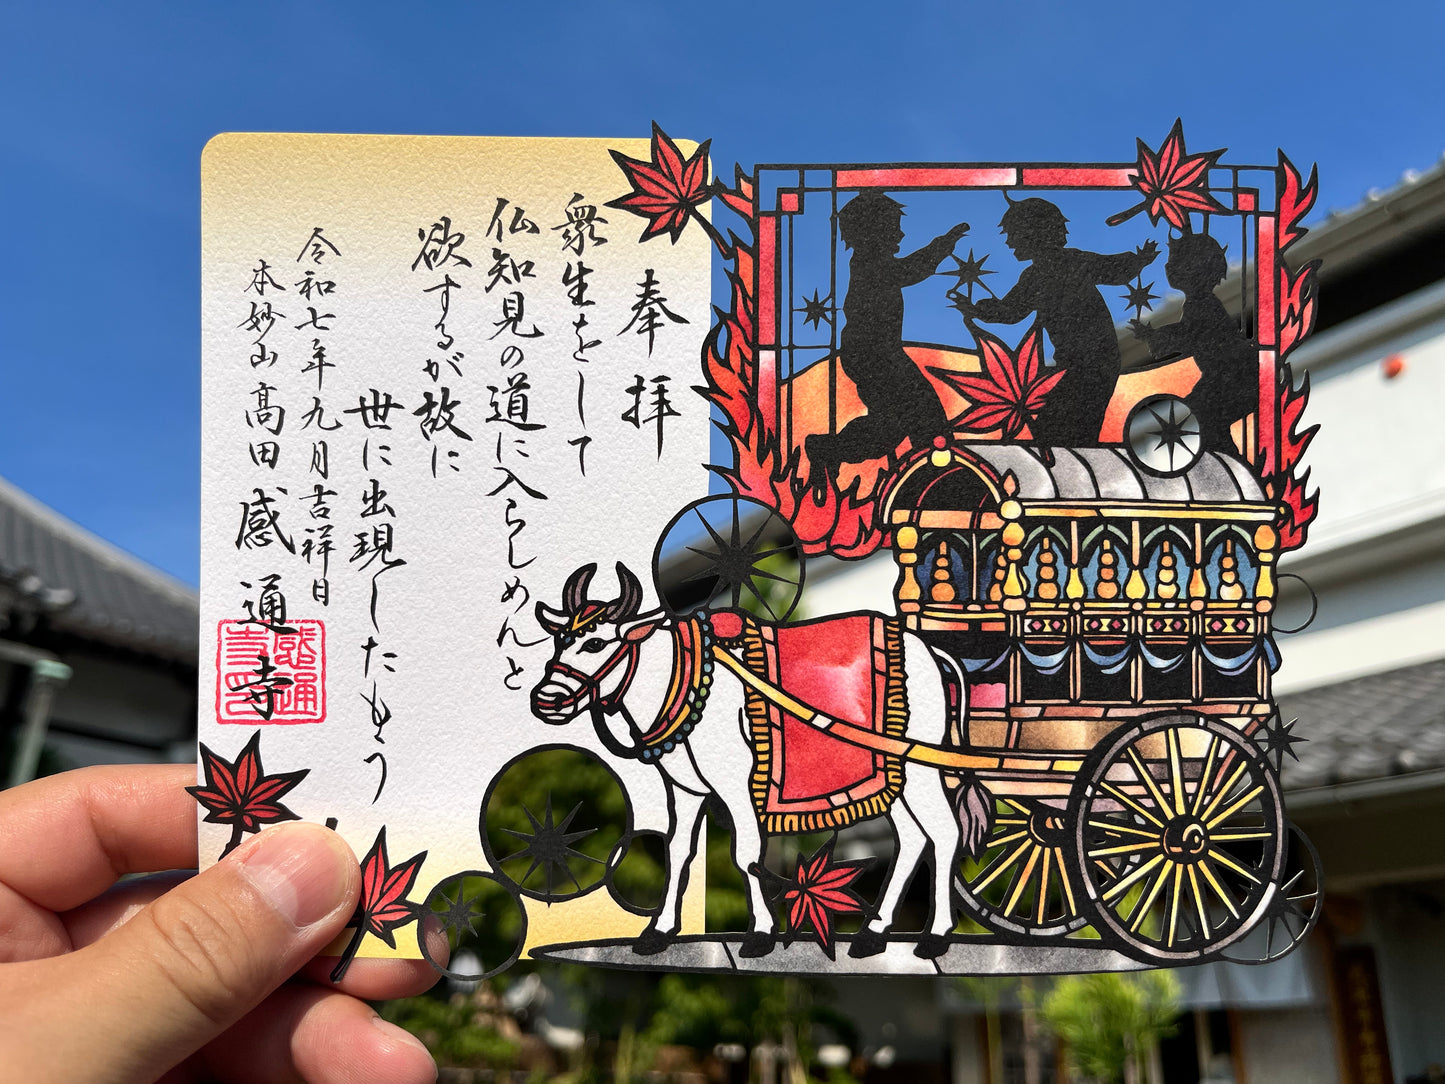 奉拝
衆生をして
仏知見の道に入らしめんと
欲するが故に
世に出現したもう
令和七年九月吉祥日
本妙山高田感通寺